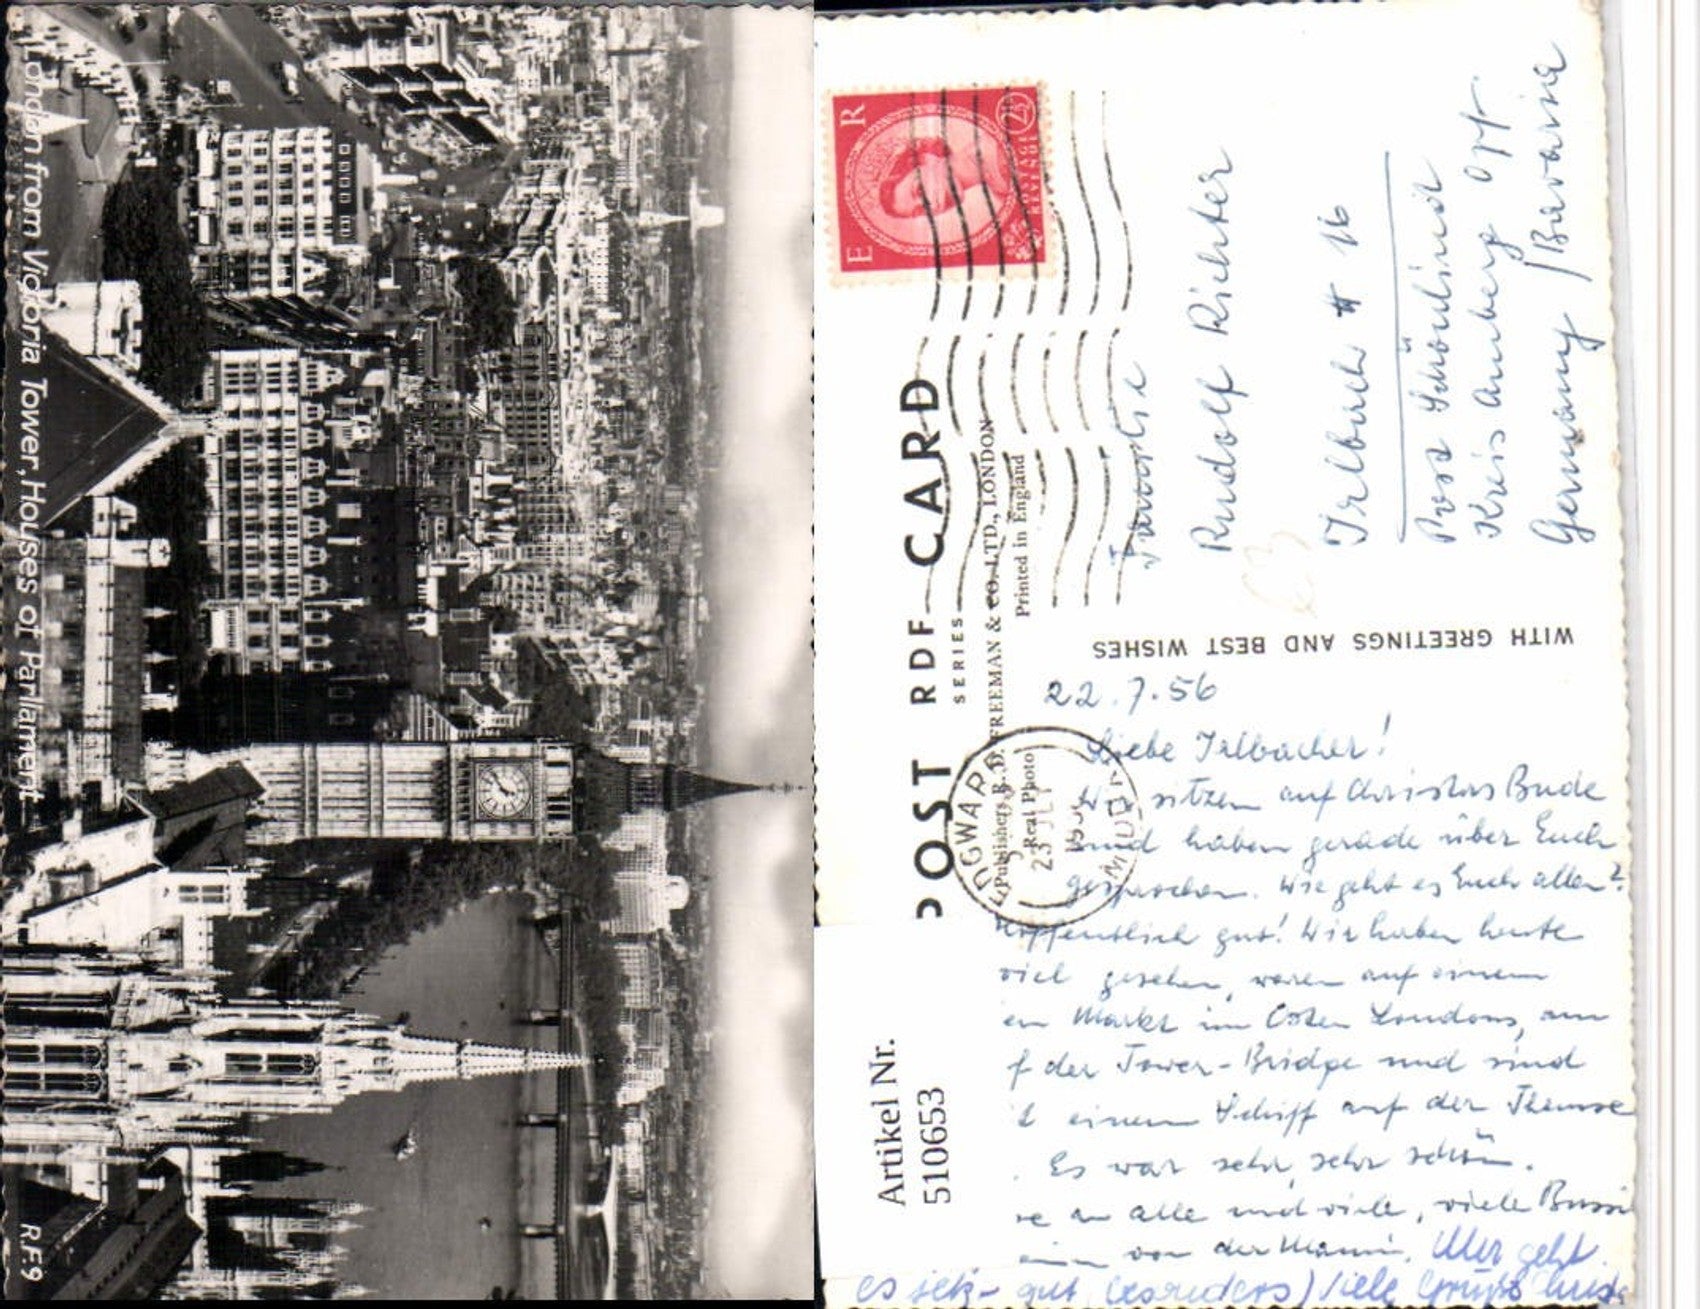 London from Victoria Tower, Houses of Parliament
R.F.9
E R
POSTAGE
REVENUE
2½
POST RDF CARD
SERIES
Publishers R. D. FREEMAN & CO. LTD., LONDON
Real Photo
Printed in England
23 JLY
Familie
Rudolf Richter
Irlbach # 16
Post Schönlind
Kreis Amberg Opf
Germany / Bavaria
WITH GREETINGS AND BEST WISHES
22.7.56
Liebe Irlbacher!
Wir sitzen auf Christas Bude
und haben gerade über Euch
gesprochen. Wie geht es Euch allen?
Hoffentlich gut! Wir haben heute
viel gesehen, waren auf einem
Markt im Osten Londons, am
f der Tower-Bridge und sind
t einem Schiff auf der Themse
. Es war sehr, sehr schön.
an alle und viele, viele Bussi
von der Mami. Mir geht
es sehr gut besonders) viele Grüße
Artikel Nr.
510653